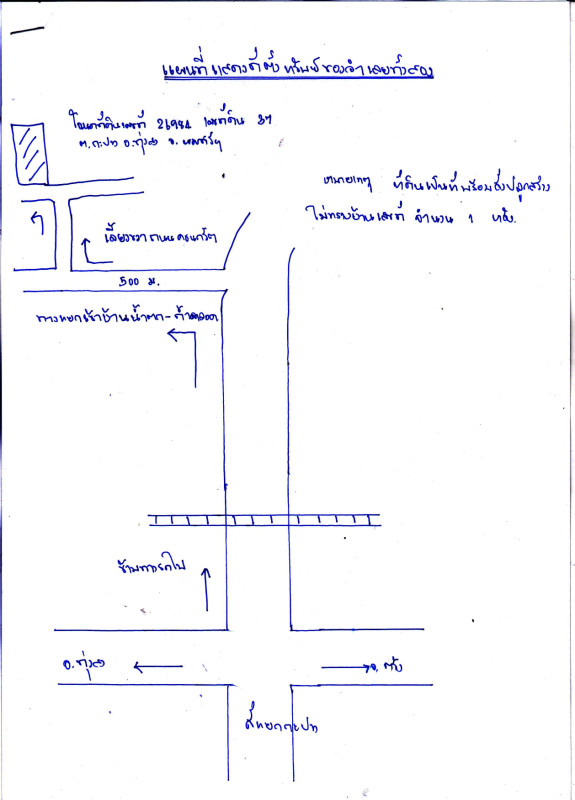 แผนที่แสดงที่ตั้งทรัพย์ของจำเลยทั้งสอง
โฉนดที่ดินเลขที่ 26984 เลขที่ดิน 37
ต.กะปาง อ.ทุ่งสง จ.นครศรีฯ
หมายเหตุ ที่ดินเป็นที่พร้อมสิ่งปลูกสร้าง
ไม่ทราบบ้านเลขที่ จำนวน 1 หลัง.
เลี้ยวขวาถนน
500 ม.
ทางแยกเข้าบ้านน้ำตก-ถ้ำตลอด
ข้ามทางรถไฟ
อ.ทุ่งสง
จ.ตรัง
สี่แยกกะปาง